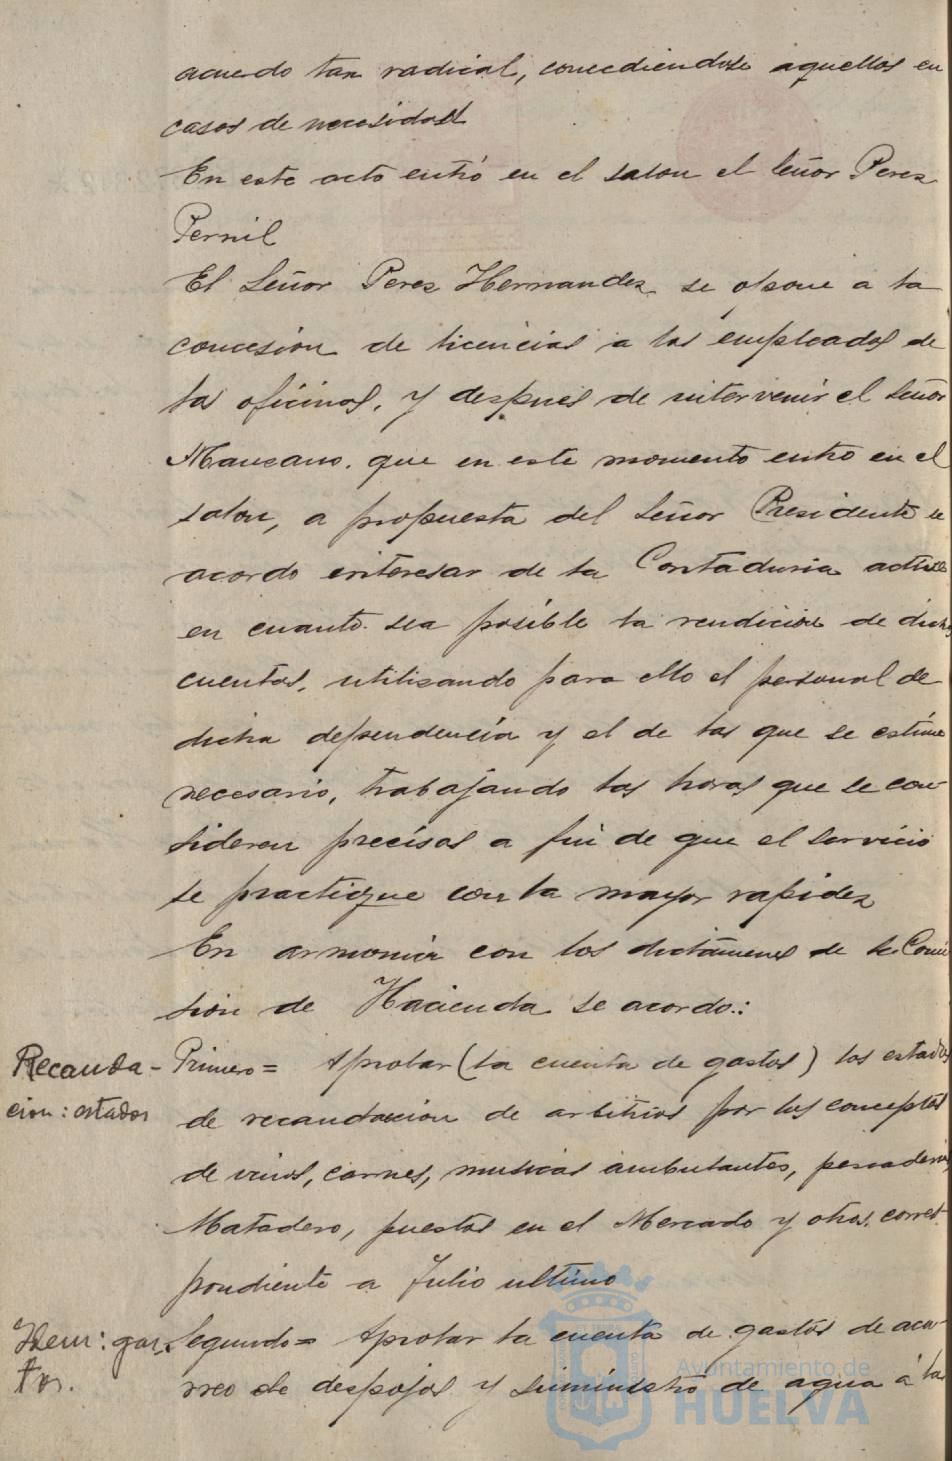 acuerdo tan radical, concediendose aquellas en
casos de necesidad
En este acto entró en el salon el Señor Perez
Pernil
El Señor Perez Hernandez se opone a la
concesion de licencias a los empleados de
las oficinas, y despues de intervenir el Señor
Manzano, que en este momento entro en el
salon, a propuesta del Señor Presidente se
acordo interesar de la Contaduria active
en cuanto sea posible la rendicion de dichas
cuentas, utilizando para ello el personal de
dicha dependencia y el de las que se estime
necesario, trabajando las horas que se con
sideren precisas a fin de que el servicio
se practique con la mayor rapidez
En armonia con los dictámenes de la Comi
sion de Hacienda se acordo:
Recauda-
cion: estados
Primero= Aprobar (la cuenta de gastos) los estados
de recaudacion de arbitrios por los conceptos
de vinos, carnes, musicas ambulantes, pescaderia,
Matadero, puestos en el Mercado y otros, corres-
pondiente a Julio ultimo
Idem: gas-
tos.
Segundo= Aprobar la cuenta de gastos de aca-
rreo de despojos y suministro de agua á las
Ayuntamiento de
HUELVA